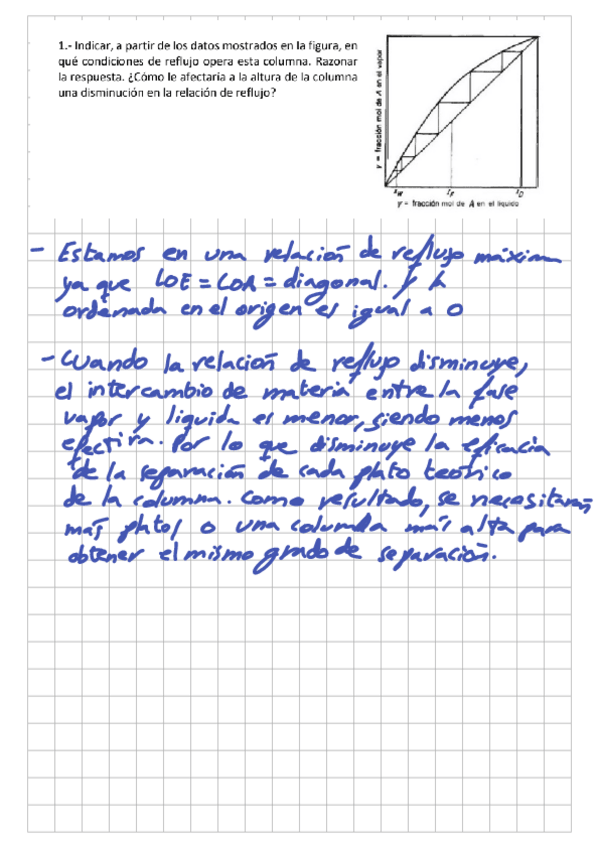 1.- Indicar, a partir de los datos mostrados en la figura, en
qué condiciones de reflujo opera esta columna. Razonar
la respuesta. ¿Cómo le afectaria a la altura de la columna
una disminución en la relación de reflujo?
y = fracción mol de A en el vapor
xW xF xD
y = fracción mol de A en el líquido
- Estamos en una relación de reflujo máxima
ya que LOE = LOA = diagonal. y la
ordenada en el origen es igual a 0
- Cuando la relación de reflujo disminuye,
el intercambio de materia entre la fase
vapor y liquida es menor, siendo menos
efectiva. Por lo que disminuye la eficacia
de la separación de cada plato teórico
de la columna. Como resultado, se necesitarán
más platos o una columna más alta para
obtener el mismo grado de separación.